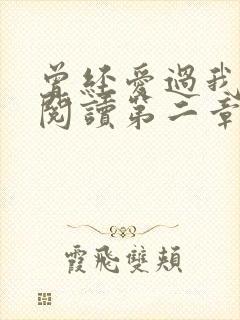 曾經愛過我
閱讀第二章
霞飛雙頰